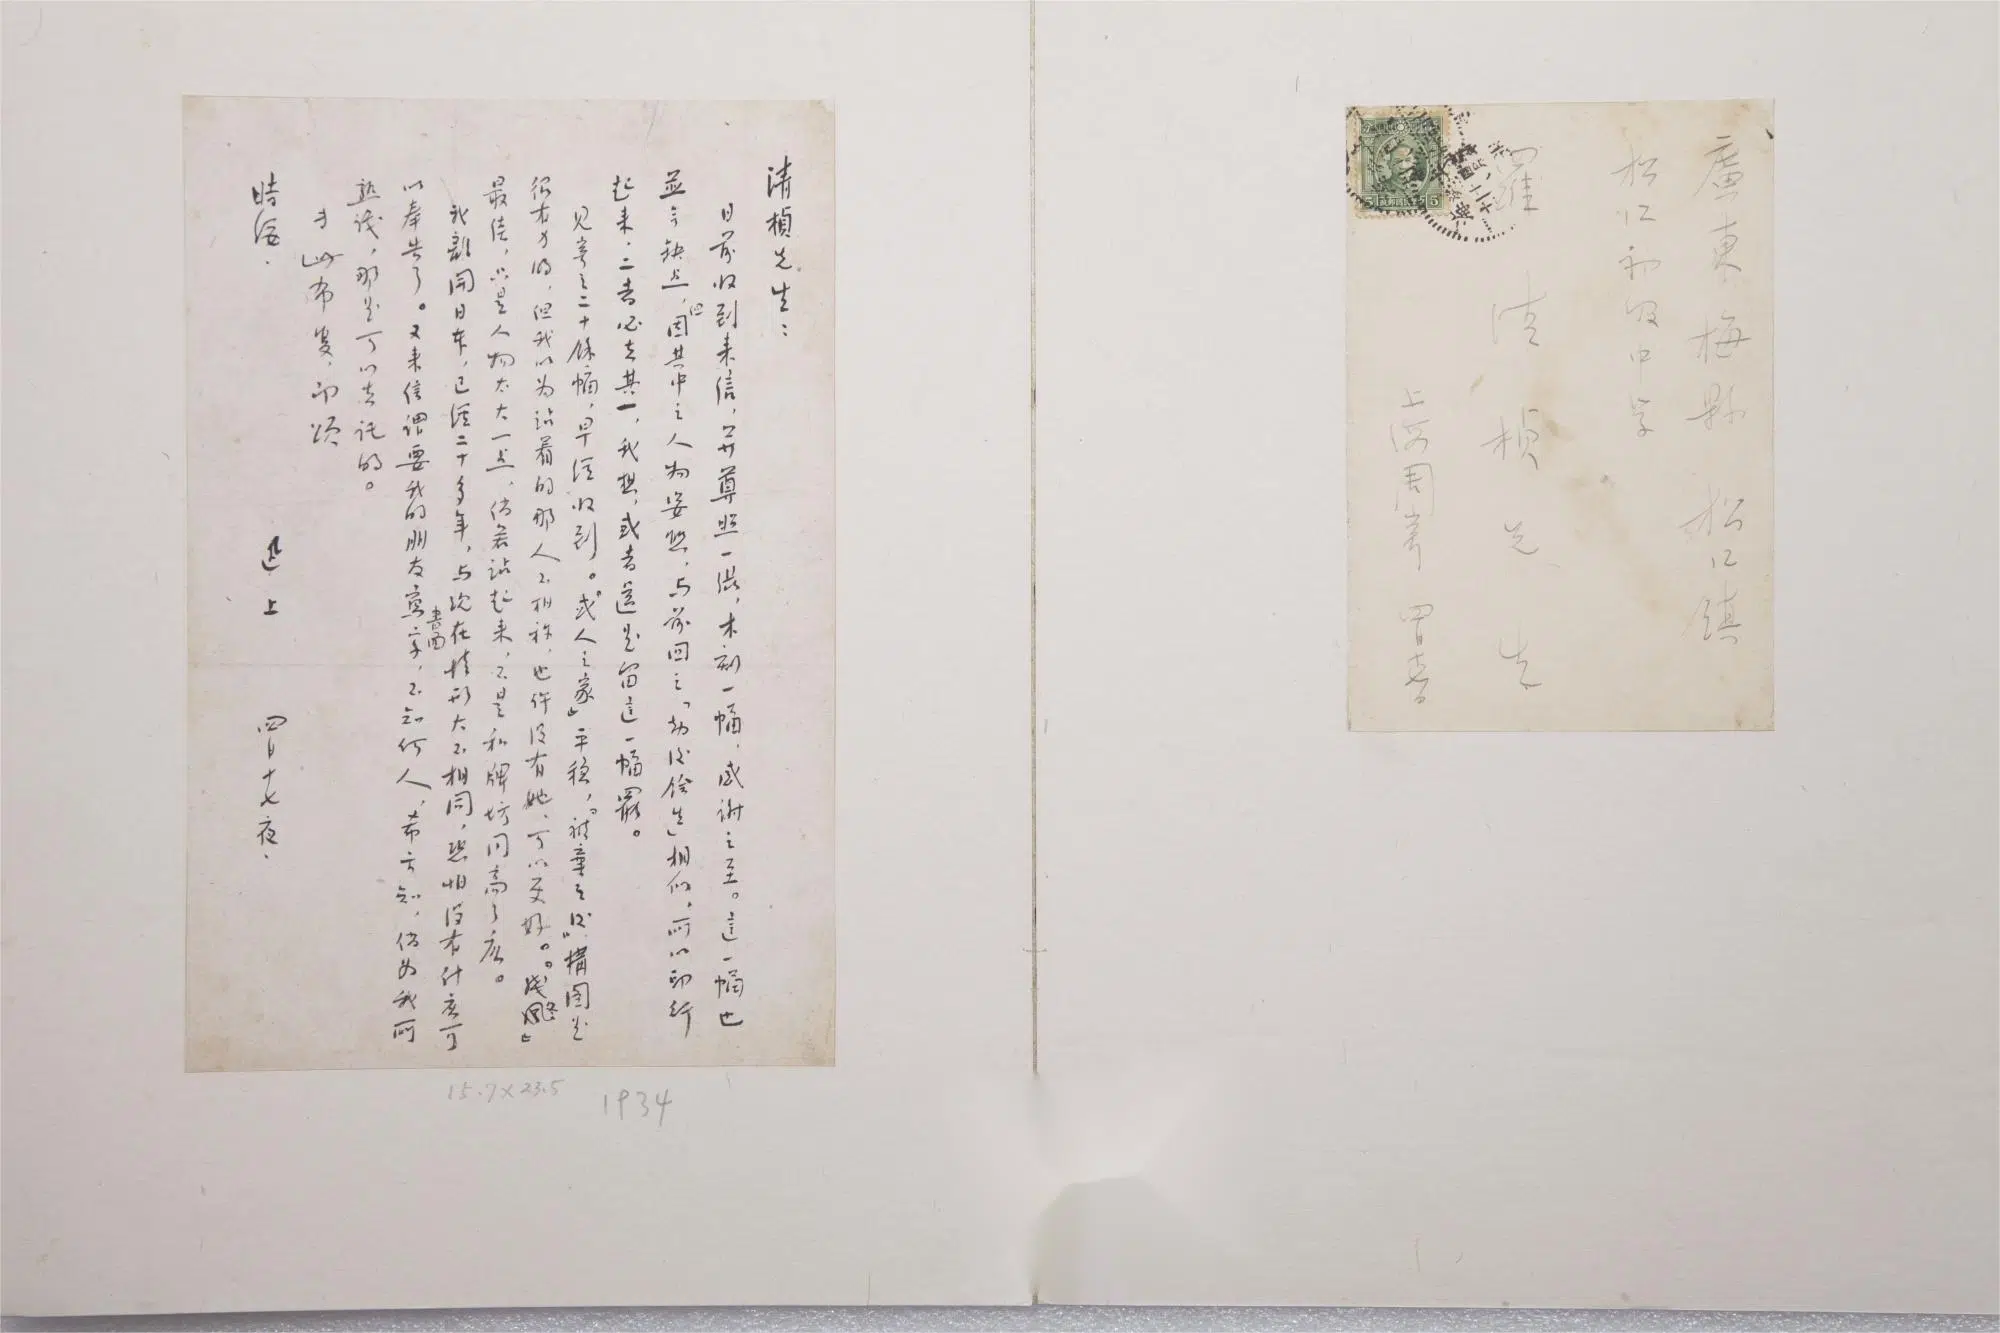 清楨先生：
日前收到来信，并尊照一張，木刻一幅，感謝之至。這一幅也
並无缺点，但因其中之人物姿態，与前回之「劫後餘生」相似，所以印行
起来，二者必去其一，我想，或者還是留這一幅罷。
見寄之二十餘幅，早经收到。「或人之家」平穏，「被棄之後」構图是
很有力的，但我以为站着的那人不相称，也许没有她，可以更好。「残冬」
最佳，只是人物太大一点，倘若站起来，不是和牌坊同高了么。
我離開日本，已经二十多年，与现在情形大不相同，恐怕没有什么可
以奉告了。又来信謂要我的朋友寫書面字，不知何人，希示知，倘为我所
熟識，那是可以去託的。
专此布复，即颂
時绥。
迅上 四月十七夜。
15.7×23.5
1934
廣東梅縣松口鎮
松口初级中学
羅清楨先生
上海周寄 四月十七日
5
5